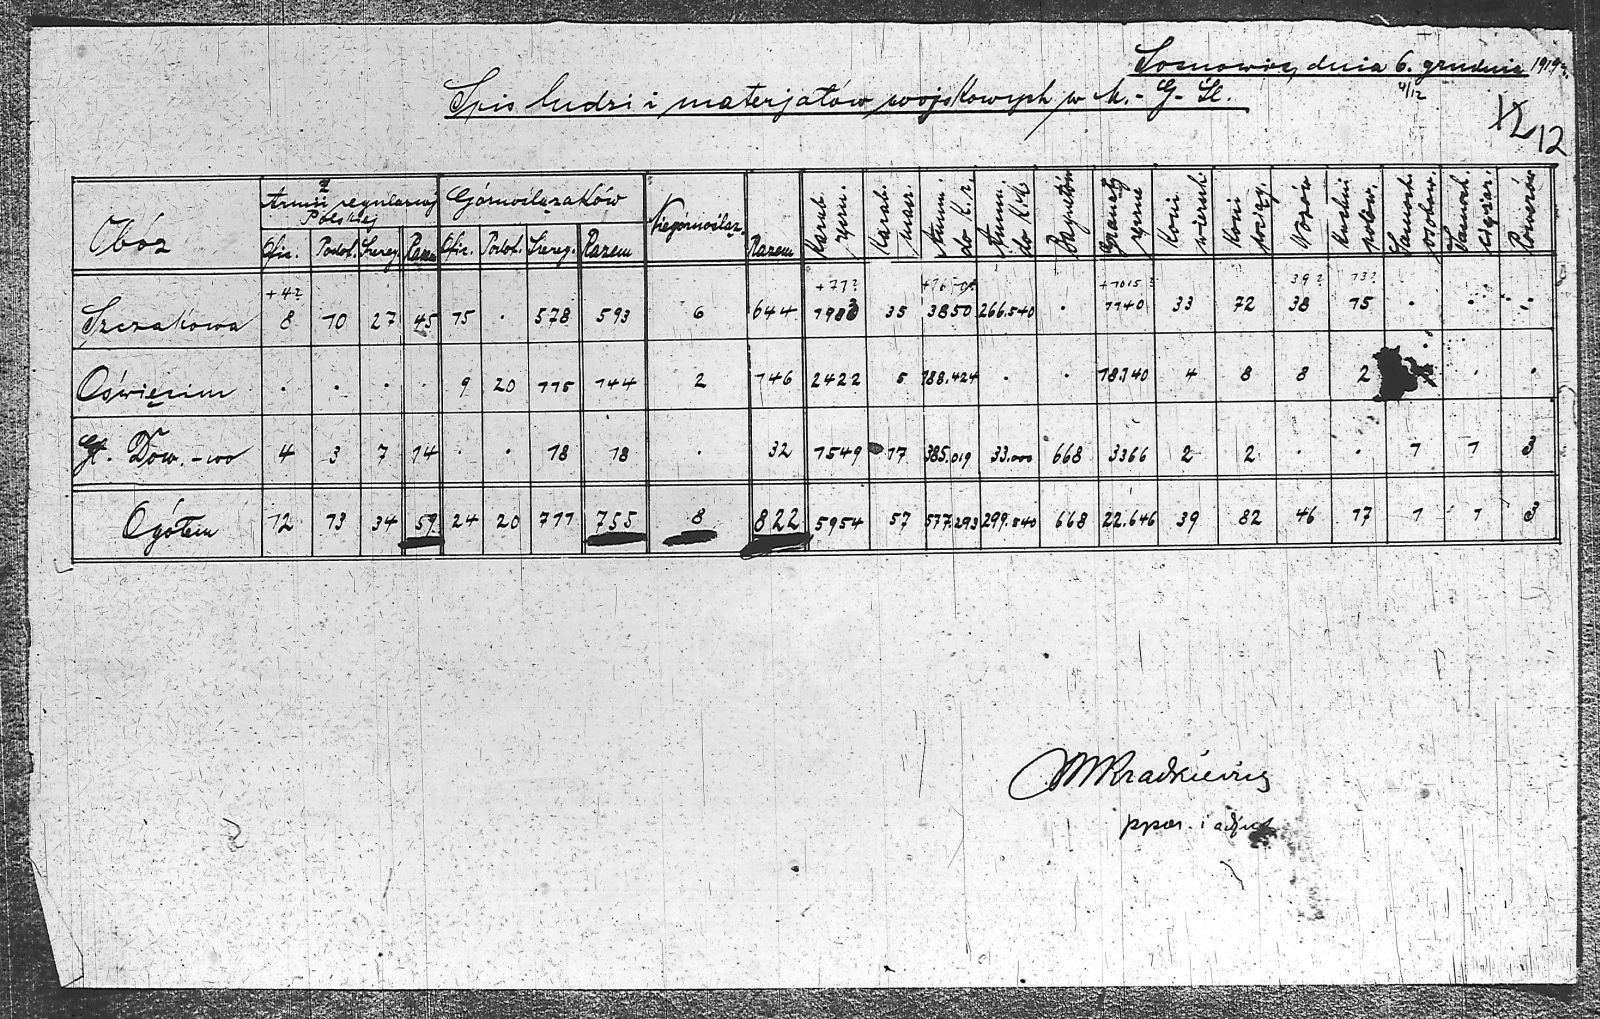 Sosnowiec, dnia 6. grudnia 1919 r.
4/12
Spis ludzi i materjałów wojskowych w M.-G-Śl.
12
Obóz
z Armii regularnej Polskiej
Górnoślązaków
Niegórnośląz.
Razem
Karab. ręczn.
Karab. masz.
Amun. do K.r.
Amun. do K.M.
Bagnetów
Granaty ręczne
Koni wierzch.
Koni pociąg.
Wozów
Kuchni polow.
Samoch. osobow.
Samoch. ciężar.
Rowerów
Ofic. Podof. Szereg. Razem Ofic. Podof. Szereg. Razem
+4? +77? +1015? 39? 13?
Szczakowa 8 10 27 45 15 . 578 593 6 644 1983 35 3850 266.540 . 1140 33 72 38 15 . . .
Oświęcim . . . . 9 20 115 144 2 146 2422 5 188.424 . . 18.140 4 8 8 2 . .
Gł. Dow.-wo 4 3 7 14 . . 18 18 . 32 1549 17 385.019 33.000 668 3366 2 2 . . 1 1 3
Ogółem 12 13 34 59 24 20 711 755 8 822 5954 57 577.293 299.540 668 22.646 39 82 46 17 1 1 3
ppor. i adjut